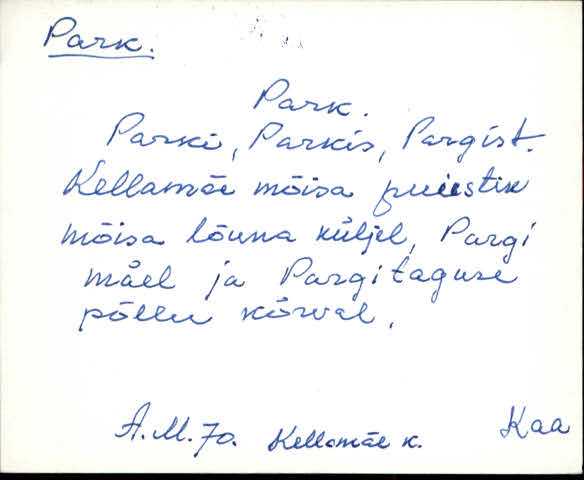 Park.
Park.
Parki, Parkis, Pargist.
Kellamäe mõisa puiestik
mõisa lõuna küljel, Pargi
mäel ja Pargitaguse
põllu kõrval.
A.M.70. Kellamäe k. Kaa